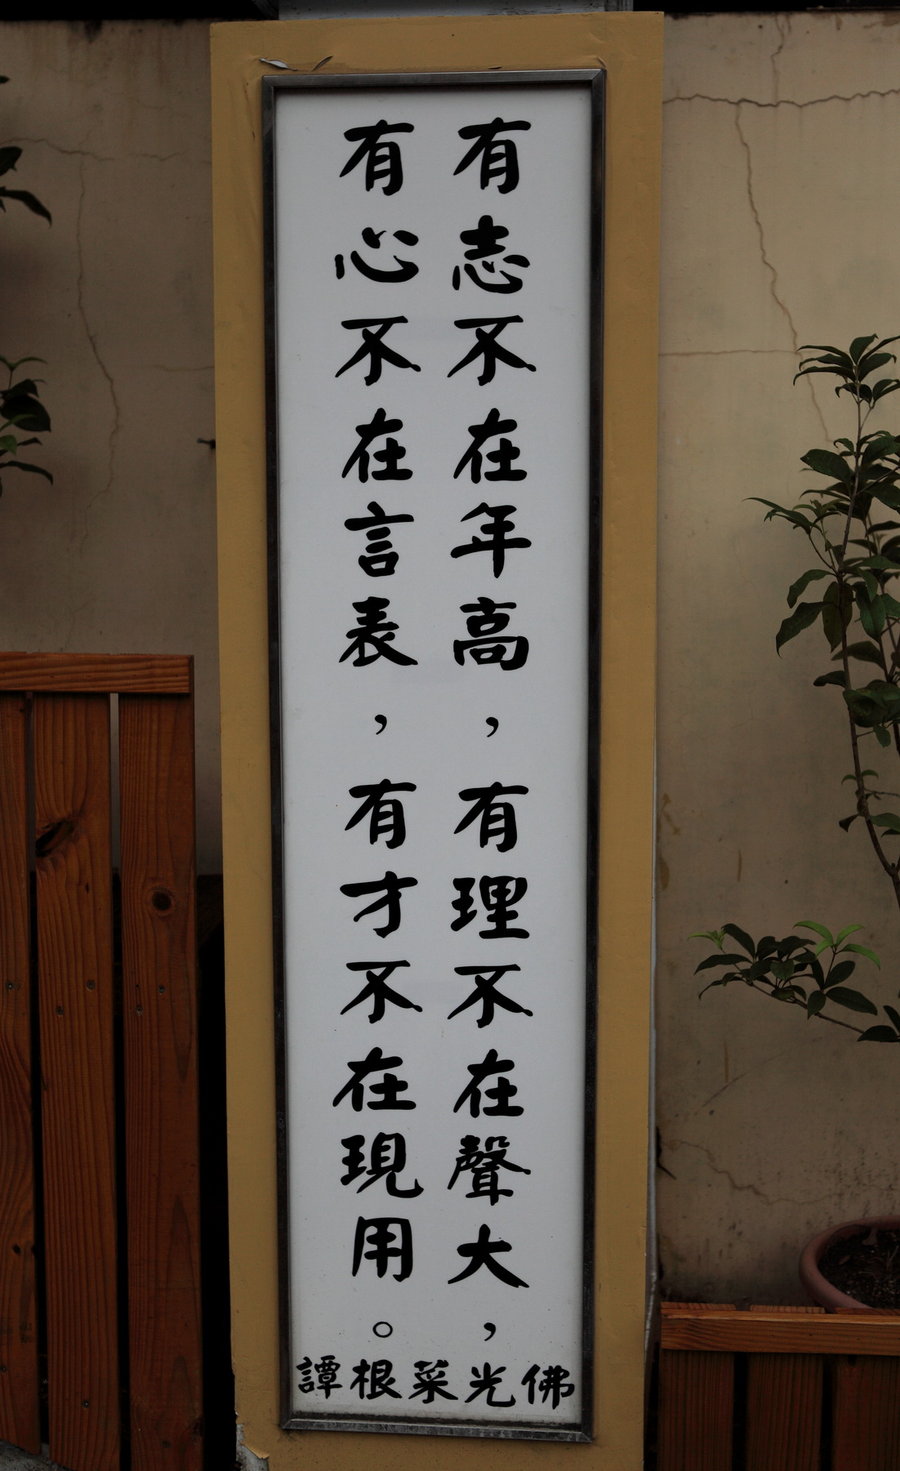 有志不在年高，有理不在聲大，
有心不在言表，有才不在現用。
佛光菜根譚